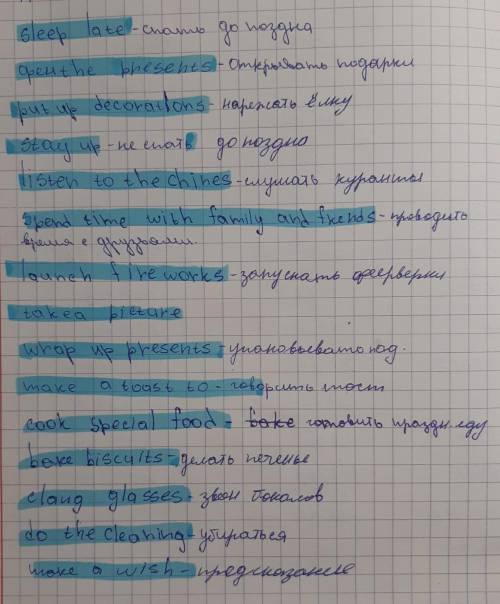 sleep late - спать до поздна
open the presents - открывать подарки
put up decorations - наряжать ёлку
stay up - не спать до поздно
listen to the chimes - слушать куранты
spend time with family and friends - проводить
время с друзьями.
launch fireworks - запускать феерверки
take a picture
wrap up presents - упаковывать под.
make a toast to - говорить тост
cook special food - bake готовить праздн. еду
bake biscuits - делать печенье
clang glasses - звон бокалов
do the cleaning - убираться
make a wish - предсказание